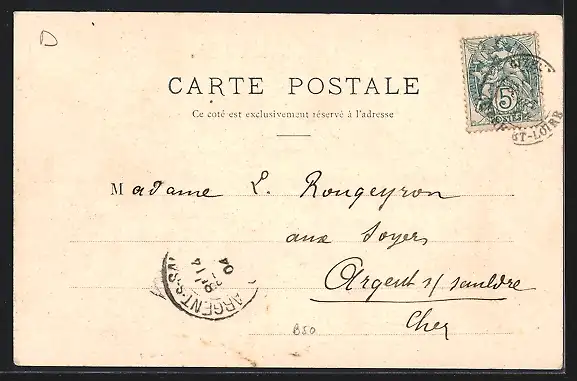 D
CARTE POSTALE
Ce coté est exclusivement réservé à l'adresse
5
POSTES
ET-LOIRE
Madame L. Rougeyron
aux Soyers
Argent s/ Sauldre
Cher
14
04
ARGENT-S-S
B50